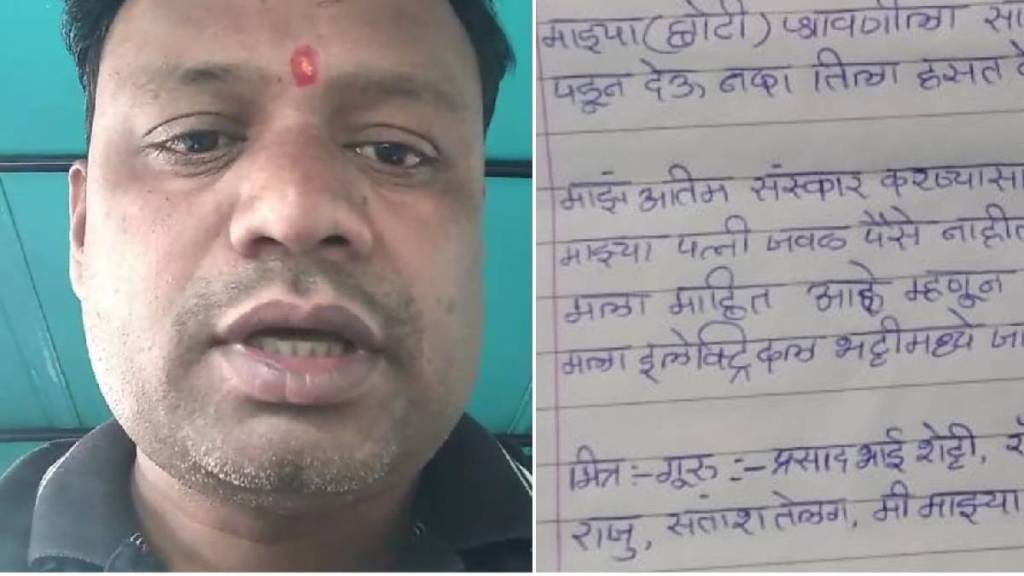 माझ्या (छोटी) श्रावणीला
पडून देऊ नका तिला हसत
माझं अंतिम संस्कार करण्यासा
माझ्या पत्नी जवळ पैसे नाहीत
मला माहित आहे म्हणून
मला इलेक्ट्रिकल भट्टीमध्ये जा
मित्र :- गूरू :- प्रसाद भाई शेट्टी,
राजु, संतोष तेलंग, मी माझ्या